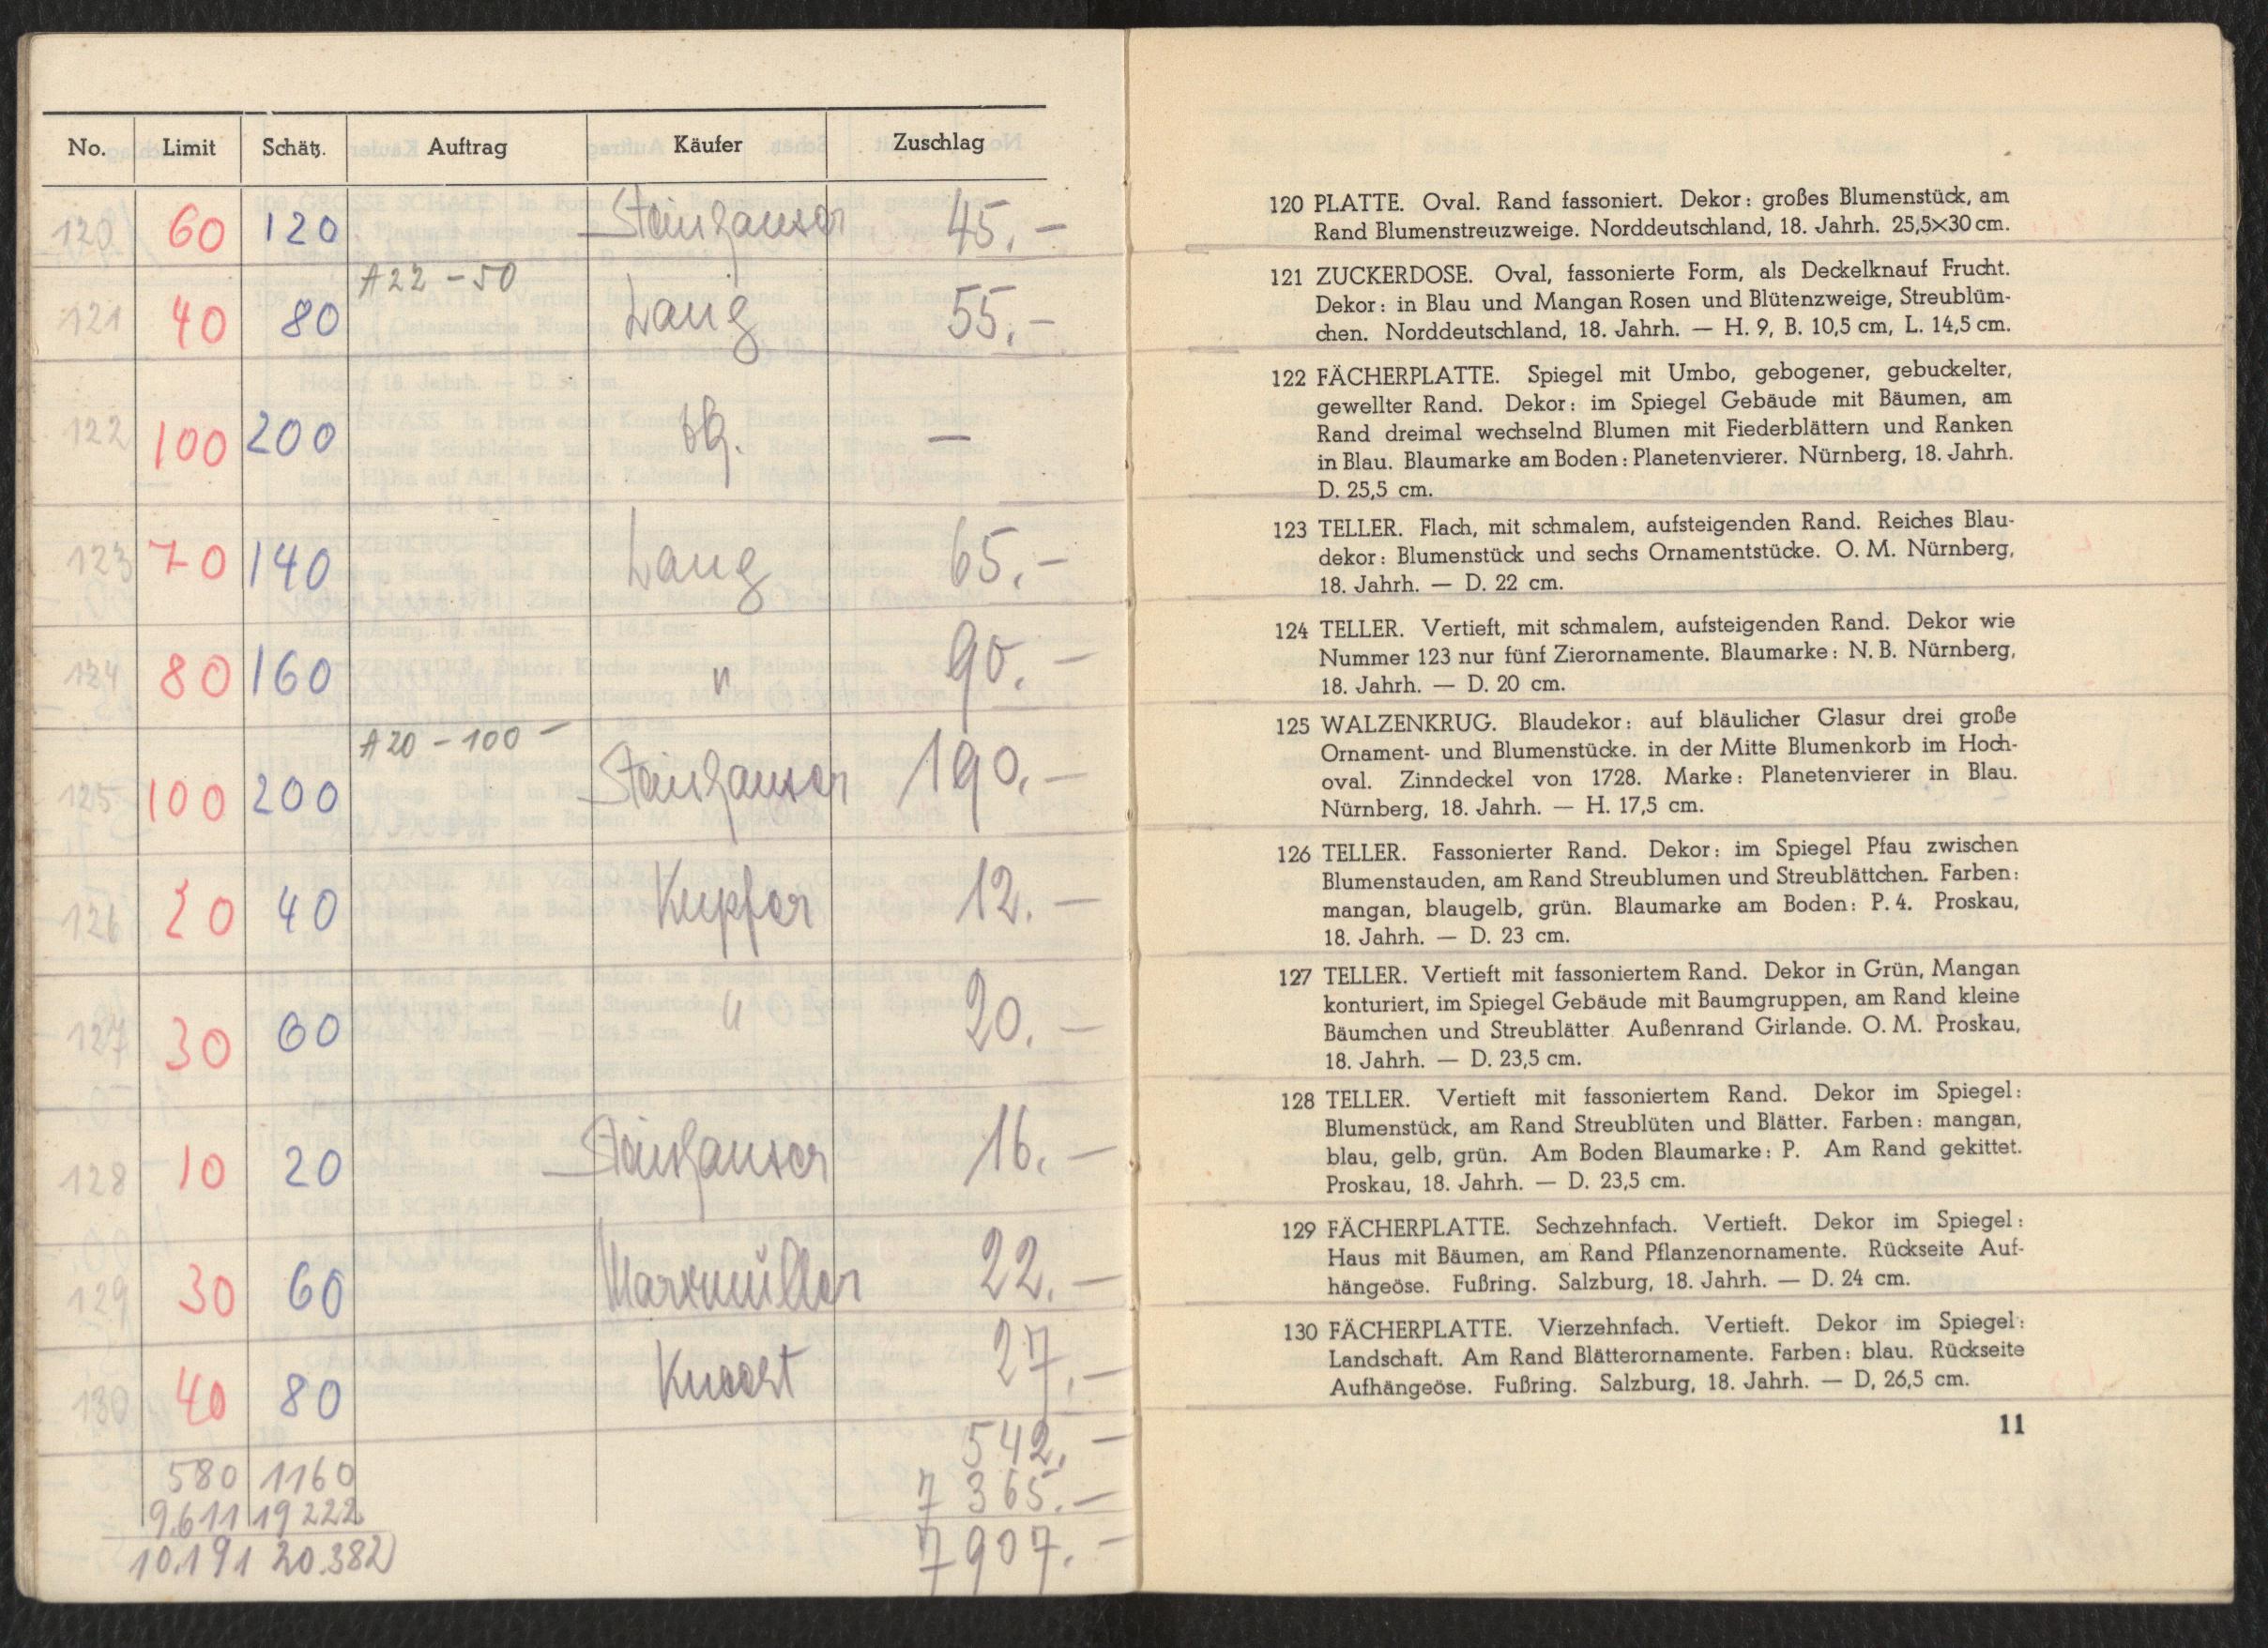 No. Limit Schätz. Auftrag Käufer Zuschlag
120 60 120 Steinhauser 45.–
A22 – 50
121 40 80 Lang 55.–
122 100 200 –
123 70 140 Lang 65.–
124 80 160 " 90.–
A20 – 100 –
125 100 200 Steinhauser 190.–
126 20 40 Kupfer 12.–
127 30 60 " 20.–
128 10 20 Steinhauser 16.–
129 30 60 Marxmüller 22.–
130 40 80 27.–
542.–
580 1160
7 365.–
9.611 19 222
7 907.–
10.191 20.382
120 PLATTE. Oval. Rand fassoniert. Dekor: großes Blumenstück, am
Rand Blumenstreuzweige. Norddeutschland, 18. Jahrh. 25,5×30 cm.
121 ZUCKERDOSE. Oval, fassonierte Form, als Deckelknauf Frucht.
Dekor: in Blau und Mangan Rosen und Blütenzweige, Streublüm-
chen. Norddeutschland, 18. Jahrh. — H. 9, B. 10,5 cm, L. 14,5 cm.
122 FÄCHERPLATTE. Spiegel mit Umbo, gebogener, gebuckelter,
gewellter Rand. Dekor: im Spiegel Gebäude mit Bäumen, am
Rand dreimal wechselnd Blumen mit Fiederblättern und Ranken
in Blau. Blaumarke am Boden: Planetenvierer. Nürnberg, 18. Jahrh.
D. 25,5 cm.
123 TELLER. Flach, mit schmalem, aufsteigenden Rand. Reiches Blau-
dekor: Blumenstück und sechs Ornamentstücke. O. M. Nürnberg,
18. Jahrh. — D. 22 cm.
124 TELLER. Vertieft, mit schmalem, aufsteigenden Rand. Dekor wie
Nummer 123 nur fünf Zierornamente. Blaumarke: N. B. Nürnberg,
18. Jahrh. — D. 20 cm.
125 WALZENKRUG. Blaudekor: auf bläulicher Glasur drei große
Ornament- und Blumenstücke. in der Mitte Blumenkorb im Hoch-
oval. Zinndeckel von 1728. Marke: Planetenvierer in Blau.
Nürnberg, 18. Jahrh. — H. 17,5 cm.
126 TELLER. Fassonierter Rand. Dekor: im Spiegel Pfau zwischen
Blumenstauden, am Rand Streublumen und Streublättchen. Farben:
mangan, blaugelb, grün. Blaumarke am Boden: P. 4. Proskau,
18. Jahrh. — D. 23 cm.
127 TELLER. Vertieft mit fassoniertem Rand. Dekor in Grün, Mangan
konturiert, im Spiegel Gebäude mit Baumgruppen, am Rand kleine
Bäumchen und Streublätter Außenrand Girlande. O. M. Proskau,
18. Jahrh. — D. 23,5 cm.
128 TELLER. Vertieft mit fassoniertem Rand. Dekor im Spiegel:
Blumenstück, am Rand Streublüten und Blätter. Farben: mangan,
blau, gelb, grün. Am Boden Blaumarke: P. Am Rand gekittet.
Proskau, 18. Jahrh. — D. 23,5 cm.
129 FÄCHERPLATTE. Sechzehnfach. Vertieft. Dekor im Spiegel:
Haus mit Bäumen, am Rand Pflanzenornamente. Rückseite Auf-
hängeöse. Fußring. Salzburg, 18. Jahrh. — D. 24 cm.
130 FÄCHERPLATTE. Vierzehnfach. Vertieft. Dekor im Spiegel:
Landschaft. Am Rand Blätterornamente. Farben: blau. Rückseite
Aufhängeöse. Fußring. Salzburg, 18. Jahrh. — D, 26,5 cm.
11